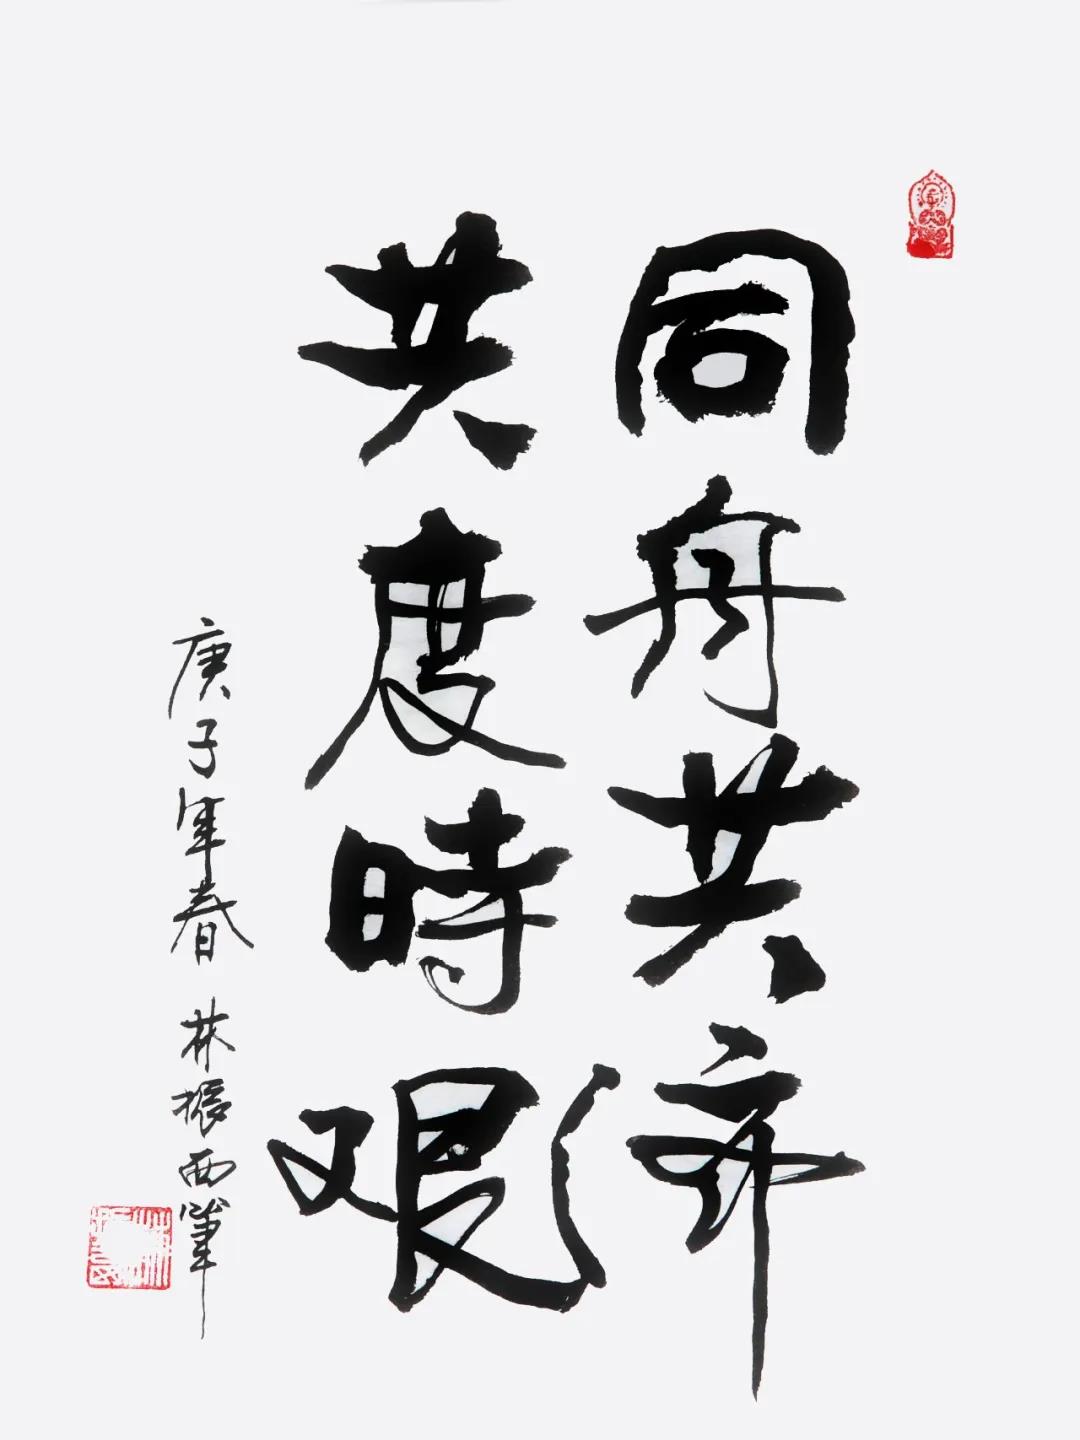 同舟共济
共度時艰
庚子年春 林振西筆